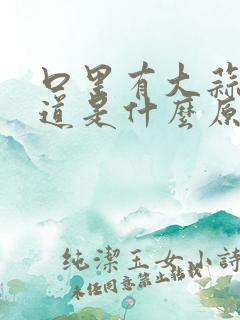 口里有大蒜
道是什麼原
純潔玉女小詩
未经同意禁止转载